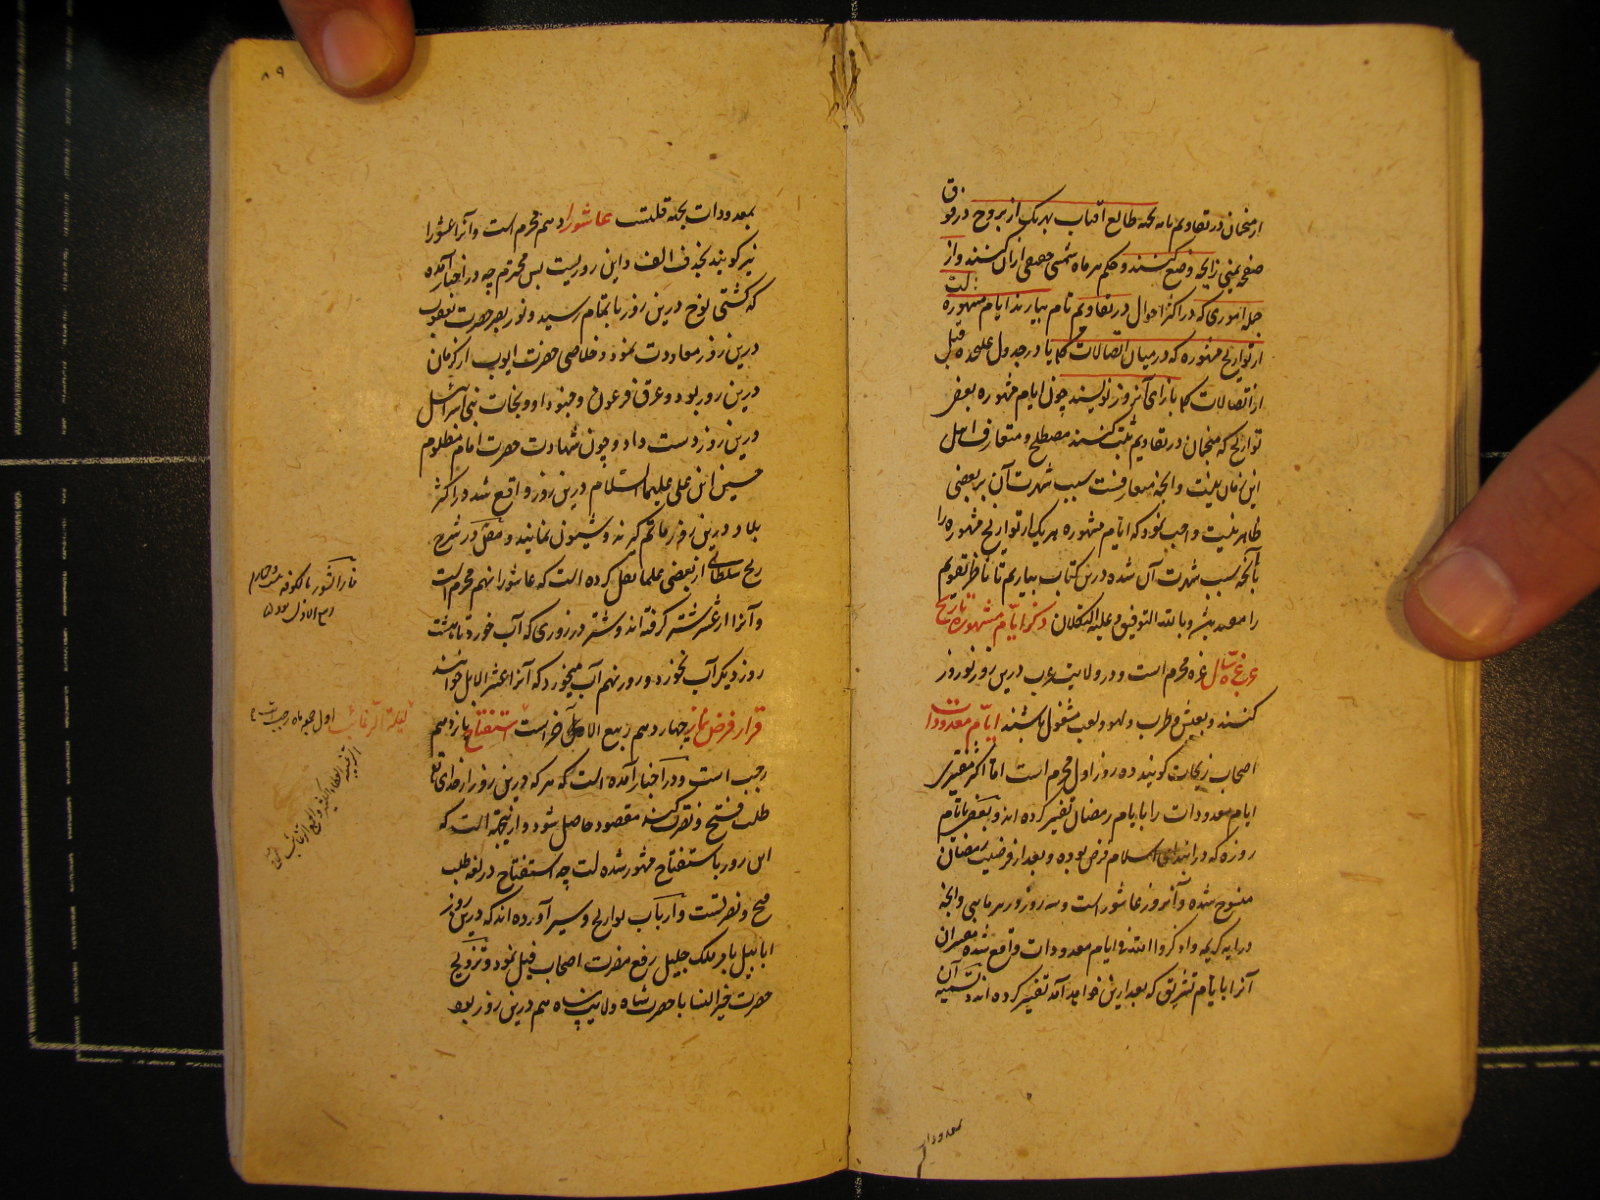 ازمنجمان در تقاویم تامه بجهة طالع آفتاب بهر یک از بروج در فوق
صفحه یمنی زایجه وضع کنند و حکم هر ماه شمسی جمعی از آن کنند و از
جمله اموری که در اکثر احوال در تقاویم تام بیارند ایام مشهوره است
از تواریخ مشهوره که در میان اتصالات کلی یا در جدول علیحده قبل
از اتصالات کلی بازای آنروز نویسند چون ایام مشهوره بعضی
تواریخ که منجمان در تقاویم ثبت کنند مصطلح و متعارف اهل
این زمان نیست و آنچه متعارفست سبب شهرت آن بر بعضی
ظاهر نیست واجب نمود که ایام مشهوره هر یک از تواریخ مشهوره را
با آنچه سبب شهرت آن شده درین کتاب بیاریم تا ناظر تقویم
را مفید باشد و بالله التوفیق و علیه التکلان ذکر ایام مشهوره تاریخ
عرب غره سال غره محرم است و در ولایت عرب درین روز نوروز
کنند و بعیش و طرب و لهو و لعب مشغول باشند ایام معدودات
اصحاب زیجات گویند ده روز اول محرم است اما اکثر مفسرین
ایام معدودات را بایام رمضان تفسیر کرده اند و بعضی بایام
روزه که در ابتدای اسلام فرض بوده و بعد از فرضیت رمضان
منسوخ شده و آنروز عاشور است و سه روز در هر ماهی و آنچه
در آیه کریمه واذکروا الله فی ایام معدودات واقع شده مفسران
آنرا بایام تشریق که بعد ازین خواهد آمد تفسیر کرده اند و تسمیه آن
معدودات
۸۹
بمعدودات بجهة قلتست عاشورا دهم محرم است و آنرا عشورا
نیز گویند بحذف الف و این روزیست بس محترم چه در اخبار آمده
که کشتی نوح درین روز باتمام رسید و نور بصر حضرت یعقوب
درین روز معاودت نمود و خلاصی حضرت ایوب از کرمان
درین روز بود و غرق فرعون و جنود او و نجات بنی اسرائیل
درین روز دست داد و چون شهادت حضرت امام مظلوم
حسین ابن علی علیهما السلام درین روز واقع شد در اکثر
بلاد درین روز ماتم گیرند و شیون نمایند و مفضل در شرح
زیج سلطانی از بعضی علما نقل کرده است که عاشورا نهم محرم است
و آنرا از عشر شتر گرفته اند و شتر در روزی که آب خورد تا هشت
روز دیگر آب نخورد و روز نهم آب میخورد که آنرا عشر الابل خوانند
قرار فرض نماز چهاردهم ربیع الاخر است استفتاح پانزدهم
رجب است و در اخبار آمده است که هر که درین روز از خدای تع
طلب فتح و نصرت کند مقصود حاصل شود و از اینجهة است که
این روز باستفتاح مشهور شده است چه استفتاح در لغة طلب
فتح و نصرتست و ارباب تواریخ و سیر آورده اند که درین روز
ابابیل بامر ملک جلیل رفع مضرت اصحاب فیل نمود و تزویج
حضرت خیر النسا با حضرت شاه ولایت پناه هم درین روز بود
ربیع الاول
لیلة الرغائب اول جمعه ماه رجب